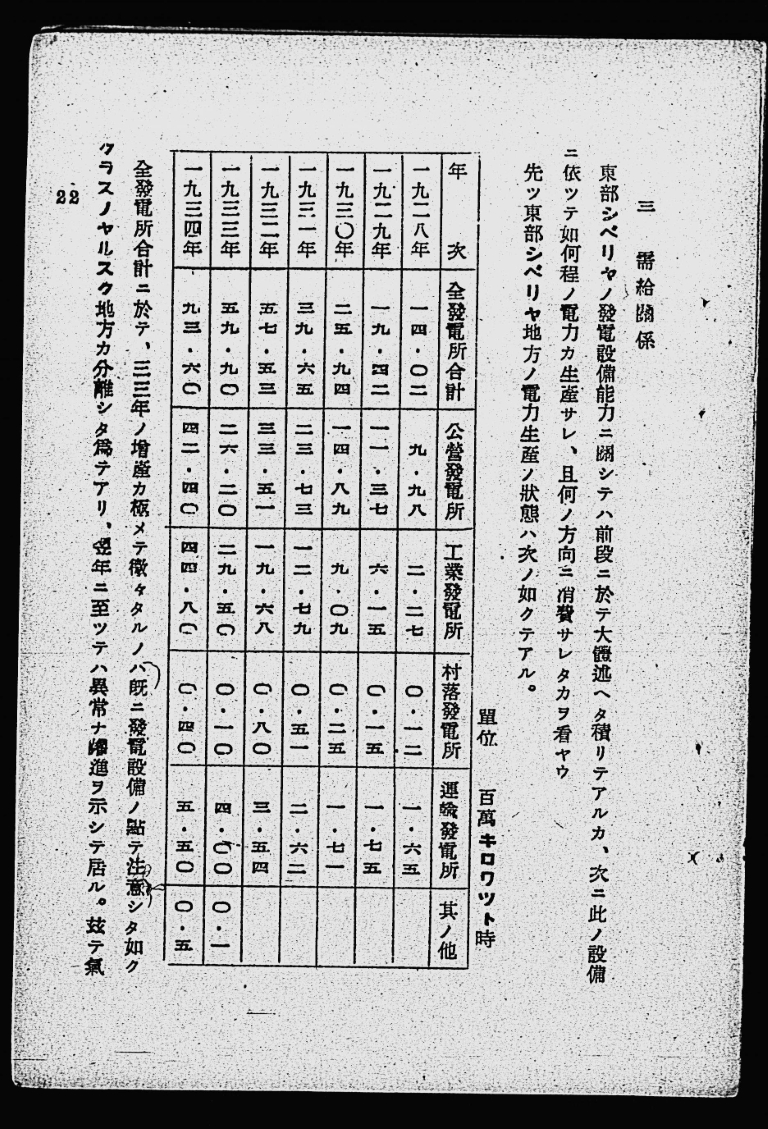 三　需給關係
東部シベリヤノ發電設備能力ニ關シテハ前段ニ於テ大體述ヘタ積リテアルカ、次ニ此ノ設備
ニ依ツテ如何程ノ電力カ生產サレ、且何ノ方向ニ消費サレタカヲ看ヤウ
先ツ東部シベリヤ地方ノ電力生產ノ狀態ハ次ノ如クテアル。
單位　百萬キロワツト時
年次　全發電所合計　公營發電所　工業發電所　村落發電所　運輸發電所　其ノ他
一九二八年　一四・〇二　九・九八　二・二七　〇・一二　一・六五
一九二九年　一九・四二　一一・三七　六・一五　〇・一五　一・七五
一九三〇年　二五・九四　一四・八九　九・〇九　〇・二五　一・七一
一九三一年　三九・六五　二三・七三　一二・七九　〇・五一　二・六二
一九三二年　五七・五三　三三・五一　一九・六八　〇・八〇　三・五四
一九三三年　五九・九〇　二六・二〇　二九・五〇　〇・一〇　四・〇〇　〇・一
一九三四年　九三・六〇　四二・四〇　四四・八〇　〇・四〇　五・五〇　〇・五
全發電所合計ニ於テ、三三年ノ增產カ極メテ微々タルノハ旣ニ發電設備ノ點テ注意シタ如ク
クラスノヤルスク地方カ分離シタ爲テアリ、翌年ニ至ツテハ異常ナ躍進ヲ示シテ居ル。玆テ氣
22